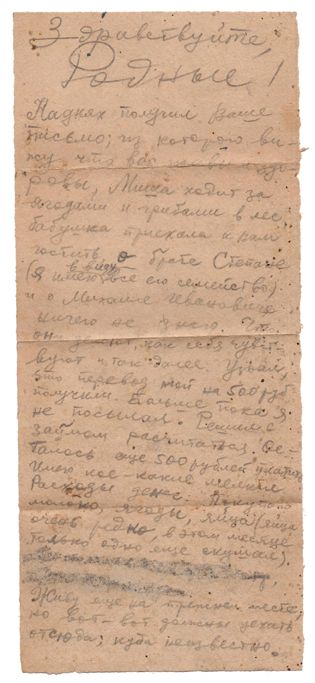 Здравствуйте,
Родные!
На днях получил Ваше
письмо; из которого ви-
жу что все живы и здо-
ровы, Миша ходит за
ягодами и грибами в лес
бабушка приехала к вам
гостить о брате Степане
(я имею в виду все его семейство)
и о Михаиле Ивановиче
ничего не знаю. Что
они делают, как себя чувст-
вуют и так далее. Узнал,
что перевод мой на 500 руб
получили. Больше пока я
не посылал. Решил с
займом расчитаться. Ос-
талось еще 500 рублей платить
Имею кое-какие мелкие
Расходы денег. Покупаю
молоко, ягоды, яйца (яйца
очень редко, в этом месяце
только одно еще скушал).
Живу еще на прежнем месте,
но вот-вот должны уехать
отсюда; куда неизвестно.